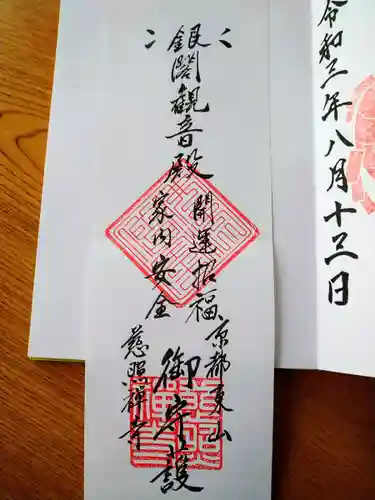 令和三年八月十三日
銀閣観音殿
開運招福
家内安全
京都東山
慈照禅寺
御守護